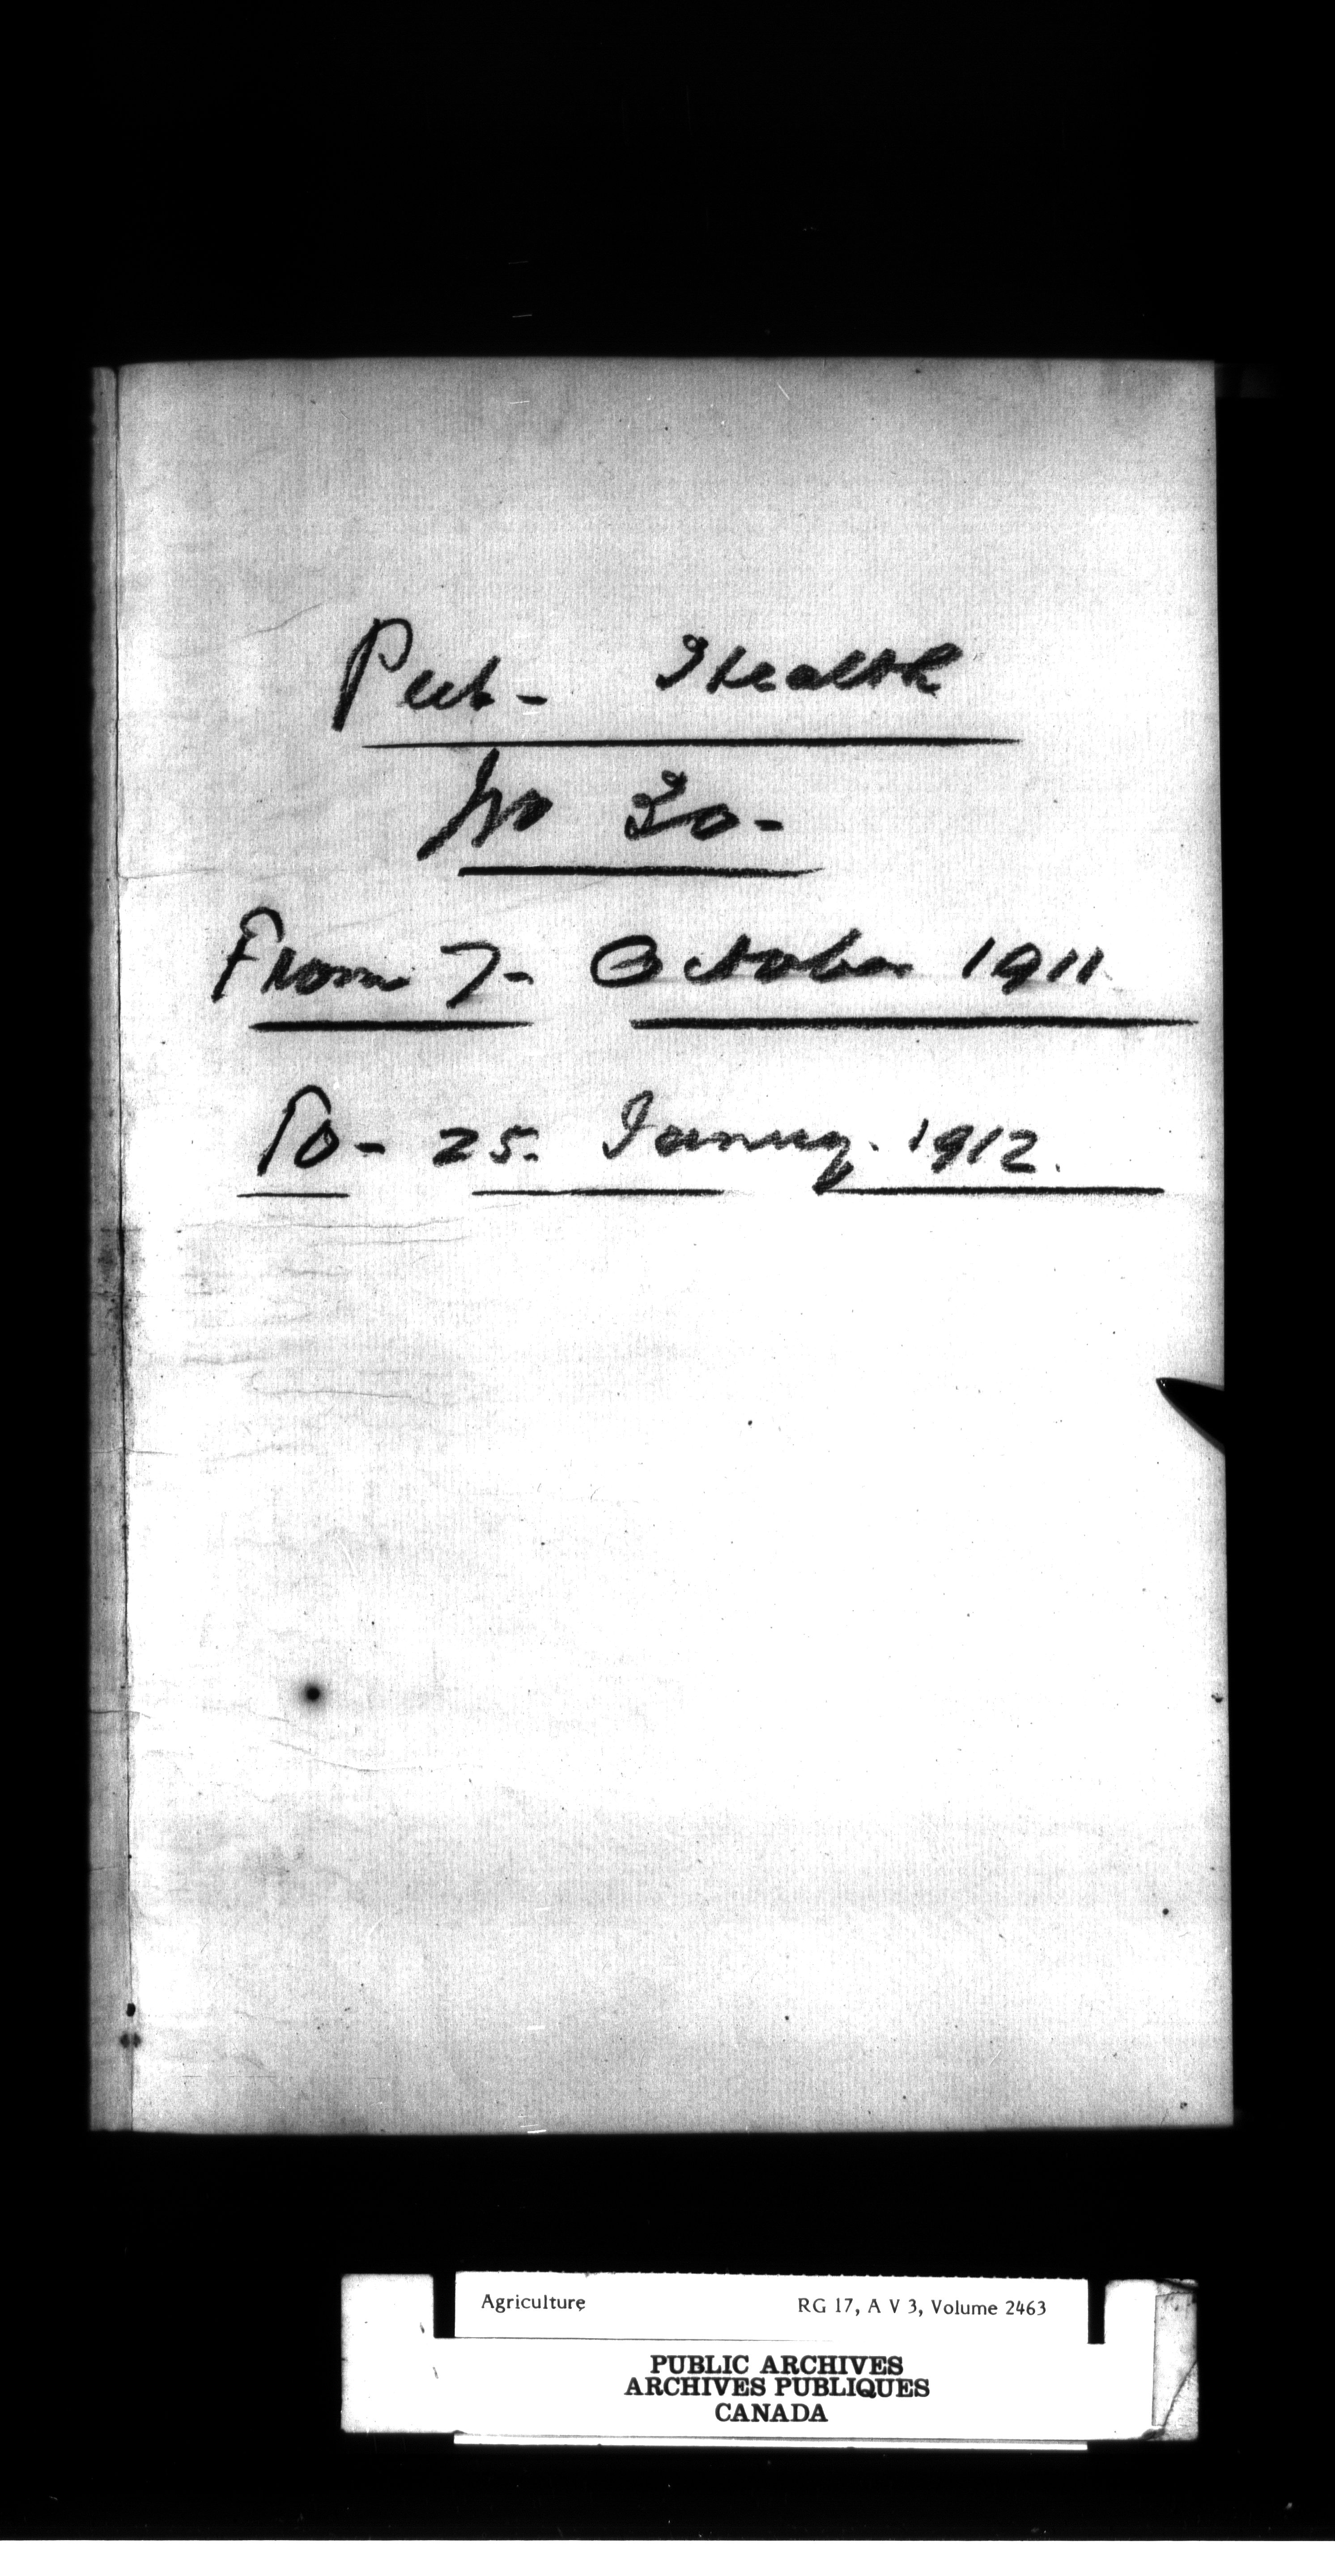 Pub- Health
No 20-
From 7- October 1911
To- 25. January. 1912.
Agriculture RG 17, A V 3, Volume 2463
PUBLIC ARCHIVES
ARCHIVES PUBLIQUES
CANADA